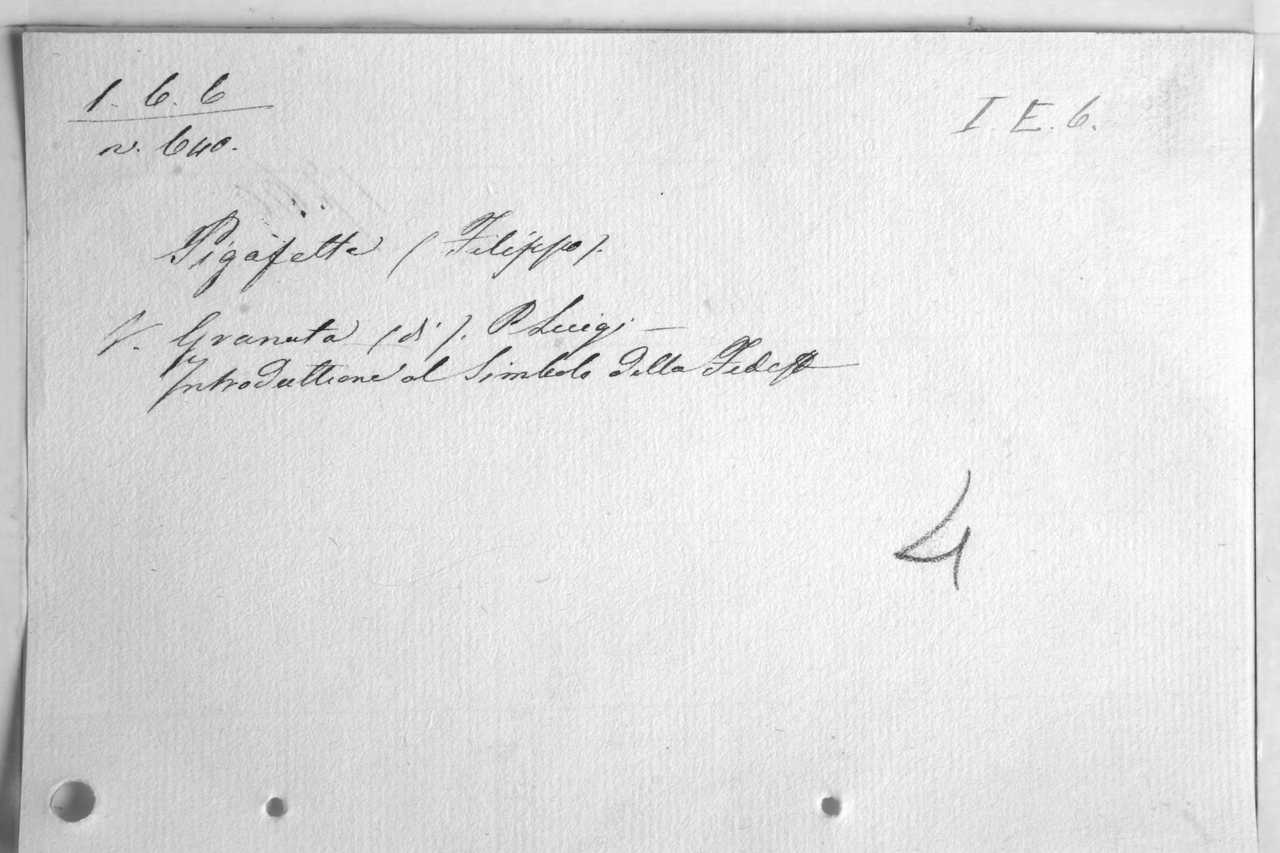 1. 6. 6
I. E. 6.
n. 640.
Pigafetta (Filippo).
V. Granata (di). P. Luigi —
Introduttione al Simbolo della Fede
4